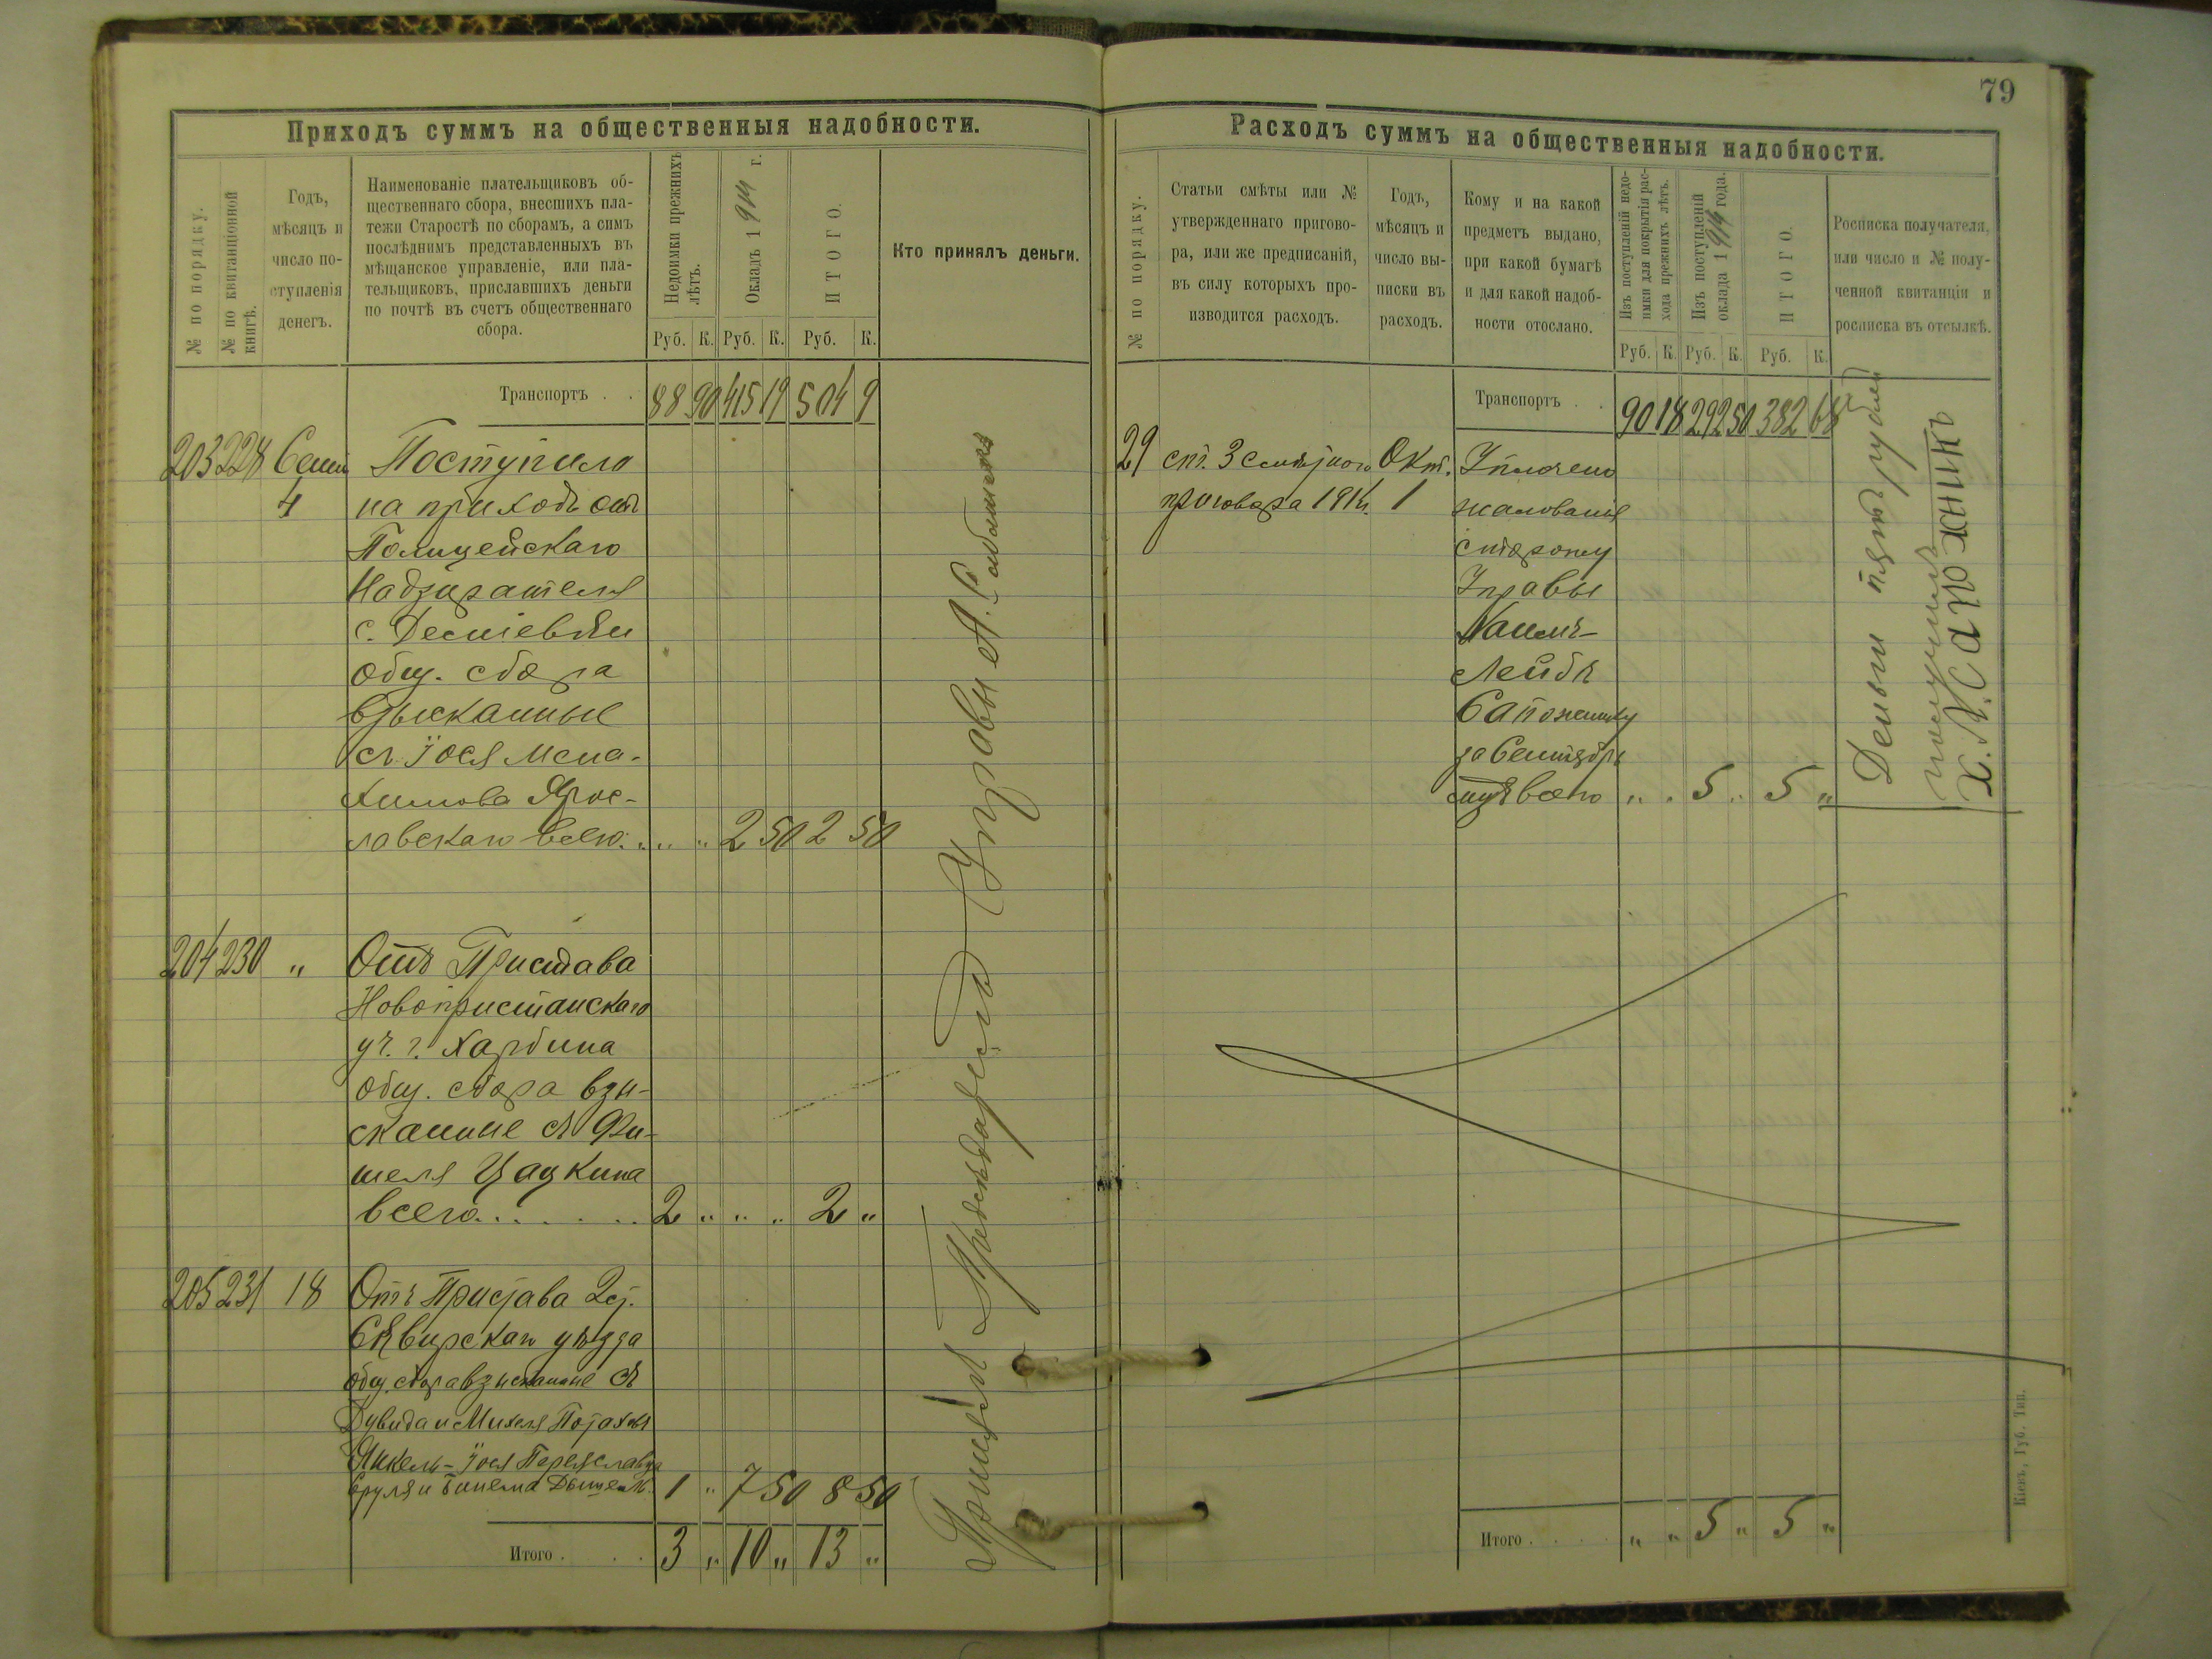 79
Приходъ суммъ на общественныя надобности.
№ по порядку.
№ по квитанціонной книгѣ.
Годъ,
мѣсяцъ и
число по-
ступленія
денегъ.
Наименованіе плательщиковъ об-
щественнаго сбора, внесшихъ пла-
тежи Старостѣ по сборамъ, а симъ
послѣднимъ представленныхъ въ
мѣщанское управленіе, или пла-
тельщиковъ, приславшихъ деньги
по почтѣ въ счетъ общественнаго
сбора.
Недоимки прежнихъ
лѣтъ.
Окладъ 1914 г.
ИТОГО.
Кто принялъ деньги.
Руб. К. Руб. К. Руб. К.
Транспортъ . . 88 90 415 19 504 9
203 228 Сент. Поступило
4 на приходъ отъ
Полицейскаго
Надзирателя
с.
общ. сбора
взысканные
съ Іося Мена-
химова Ярос-
лавскаго всего . . . " " 2 50 2 50
204 230 " Отъ Пристава
Новопристанскаго
уч. г. Харбина
общ. сбора взы-
сканные съ Фи-
шеля Цацкина
всего . . . . . . 2 " " " 2 "
205 231 18 Отъ Пристава 2 ст.
Сквирскаго уѣзда
общ. сбора взысканные съ
Дувида и Михеля
Янкель-Іося Переяславца
Сруля и 1 " 7 50 8 50
Итого . . . 3 " 10 " 13 "
Управы А.
Расходъ суммъ на общественныя надобности.
№ по порядку.
Статьи смѣты или №
утвержденнаго пригово-
ра, или же предписаній,
въ силу которыхъ про-
изводится расходъ.
Годъ,
мѣсяцъ и
число вы-
писки въ
расходъ.
Кому и на какой
предметъ выдано,
при какой бумагѣ
и для какой надоб-
ности отослано.
Изъ поступленій недо-
имки для покрытія рас-
хода прежнихъ лѣтъ.
Изъ поступленій
оклада 1914 года.
ИТОГО.
Росписка получателя,
или число и № полу-
ченной квитанціи и
росписка въ отсылкѣ.
Руб. К. Руб. К. Руб. К.
Транспортъ . . 90 18 292 50 382 68
29 ст. 3 смѣтнаго Окт. Уплочено
приговора 1914 г. 1 жалованія
сторожу
Управы
Хаимъ-
Лейбѣ
Сапожнику
за Сентябрь
мцъ всего " " 5 " 5 "
Деньги пять рублей
получилъ
Х.Л. Сапожникъ
Итого . . . . " " 5 " 5 "
Кіевъ, Губ. Тип.